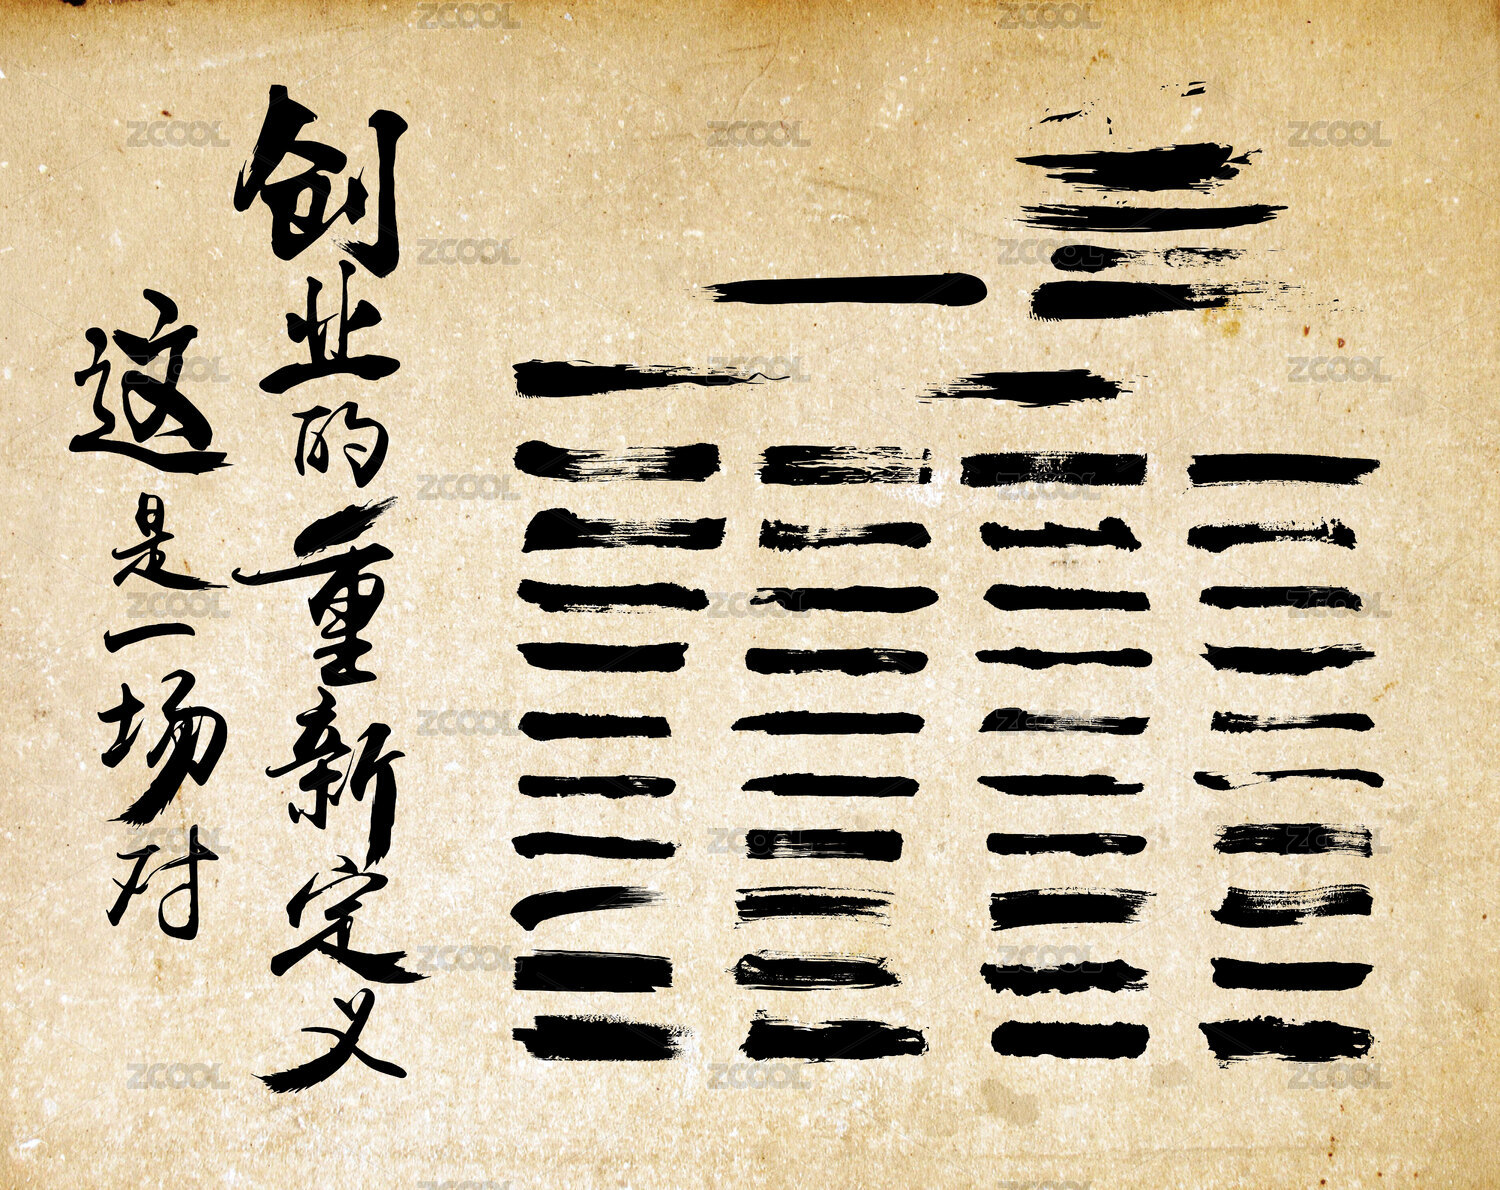 这是一场对
创业的重新定义
ZCOOL